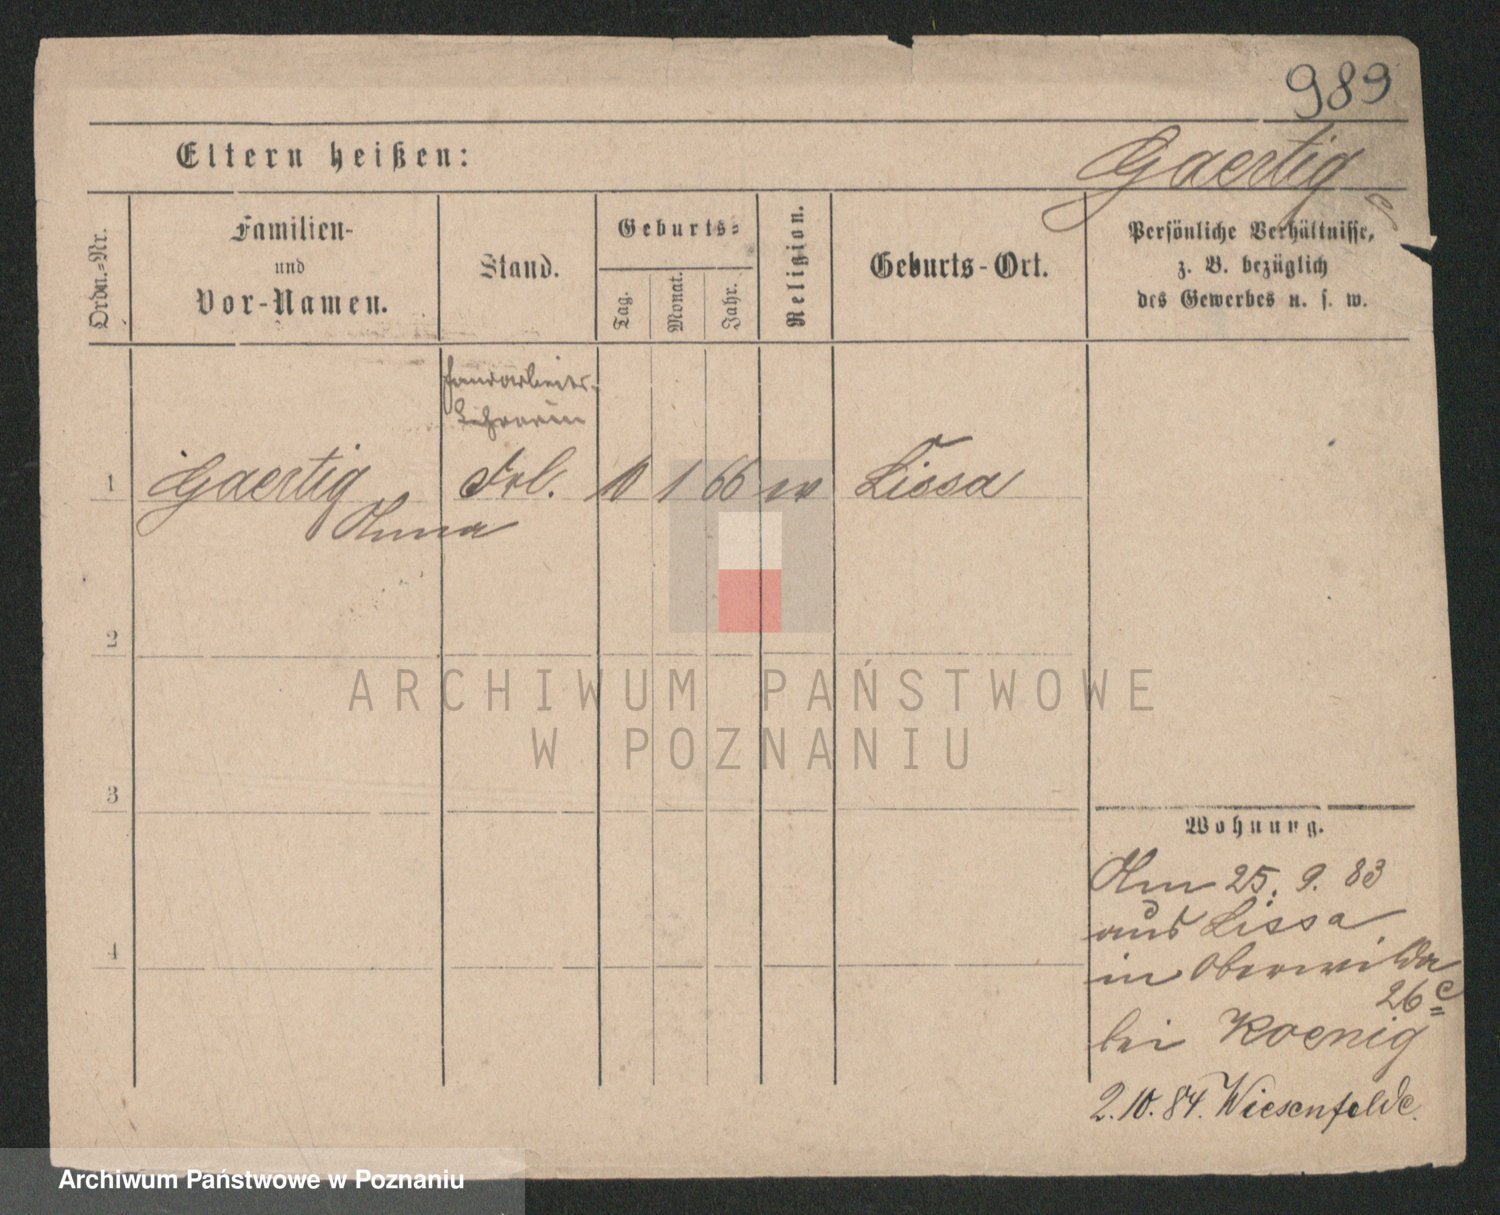 989
Eltern heißen:
Gaertig
Ordn.=Nr.
Familien-
und
Vor-Namen.
Stand.
Geburts=
Tag.
Monat.
Jahr.
Religion.
Geburts-Ort.
Persönliche Verhältnisse,
z. B. bezüglich
des Gewerbes u. s. w.
Handarbeits-
Lehrerin
1 Gaertig Frl. 10 1 66 ev Lissa
Anna
2
3
4
ARCHIWUM PAŃSTWOWE
W POZNANIU
Wohnung.
Am 25. 9. 83
aus Lissa
in Oberwilda
26c
bei Koenig
2.10.84. Wiesenfelde.
Archiwum Państwowe w Poznaniu